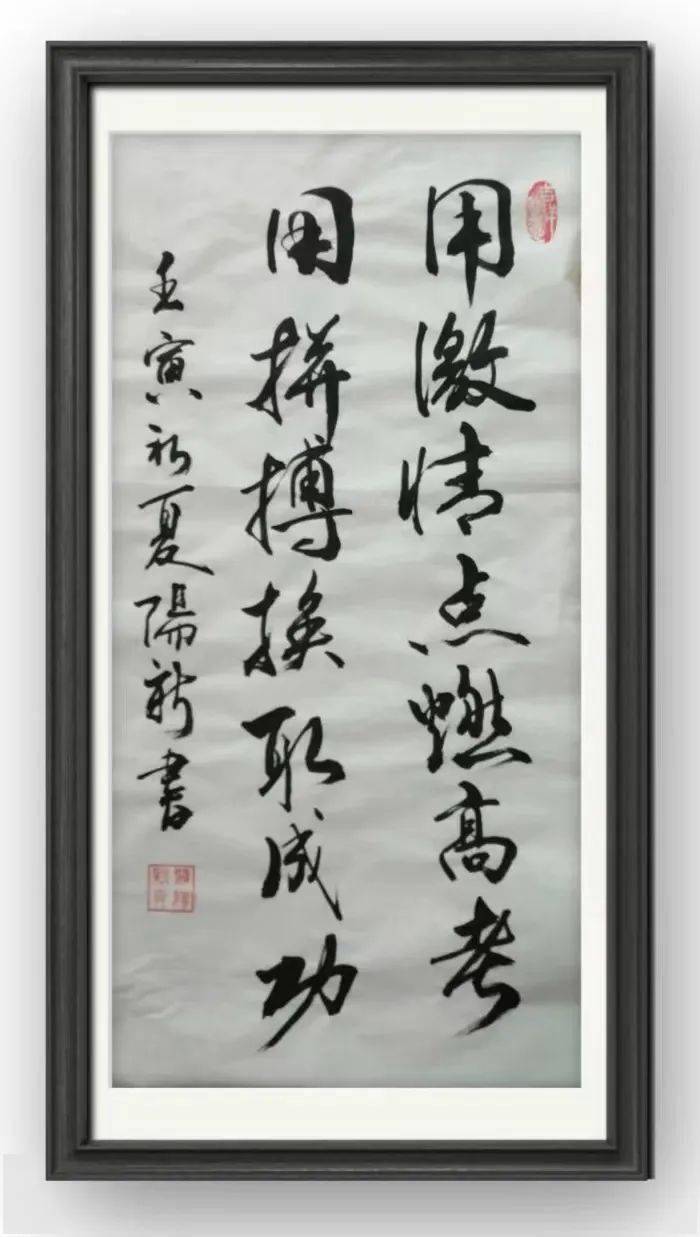 用激情点燃高考
用拼搏换取成功
壬寅初夏陽新書